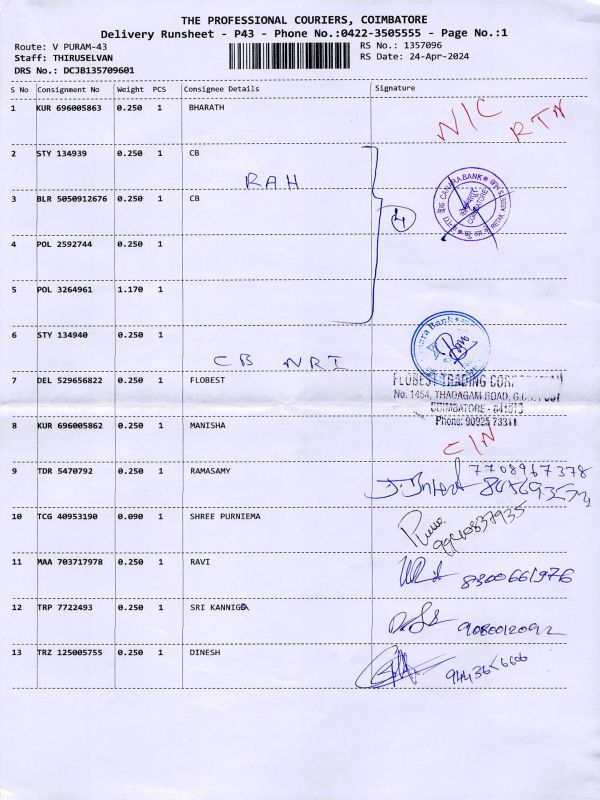 THE PROFESSIONAL COURIERS, COIMBATORE
Delivery Runsheet - P43 - Phone No.:0422-3505555 - Page No.:1
Route: V PURAM-43 RS No.: 1357096
Staff: THIRUSELVAN RS Date: 24-Apr-2024
DRS No.: DCJB135709601
S No Consignment No Weight PCS Consignee Details Signature
1 KUR 696005863 0.250 1 BHARATH N/C RTN
2 STY 134939 0.250 1 CB
RAH
CANARA BANK
COIMBATORE
3 BLR 5050912676 0.250 1 CB
4
4 POL 2592744 0.250 1
5 POL 3264961 1.170 1
6 STY 134940 0.250 1
CB NRI
7 DEL 529656822 0.250 1 FLOBEST
FLOBEST TRADING
No. 1454, THADAGAM ROAD,
COIMBATORE - 641013
Phone: 90925 73311
8 KUR 696005862 0.250 1 MANISHA C/N
7708967378
9 TDR 5470792 0.250 1 RAMASAMY
10 TCG 40953190 0.090 1 SHREE PURNIEMA
9940837935
11 MAA 703717978 0.250 1 RAVI 8300661976
12 TRP 7722493 0.250 1 SRI KANNIGA 9080012092
13 TRZ 125005755 0.250 1 DINESH 9443656606